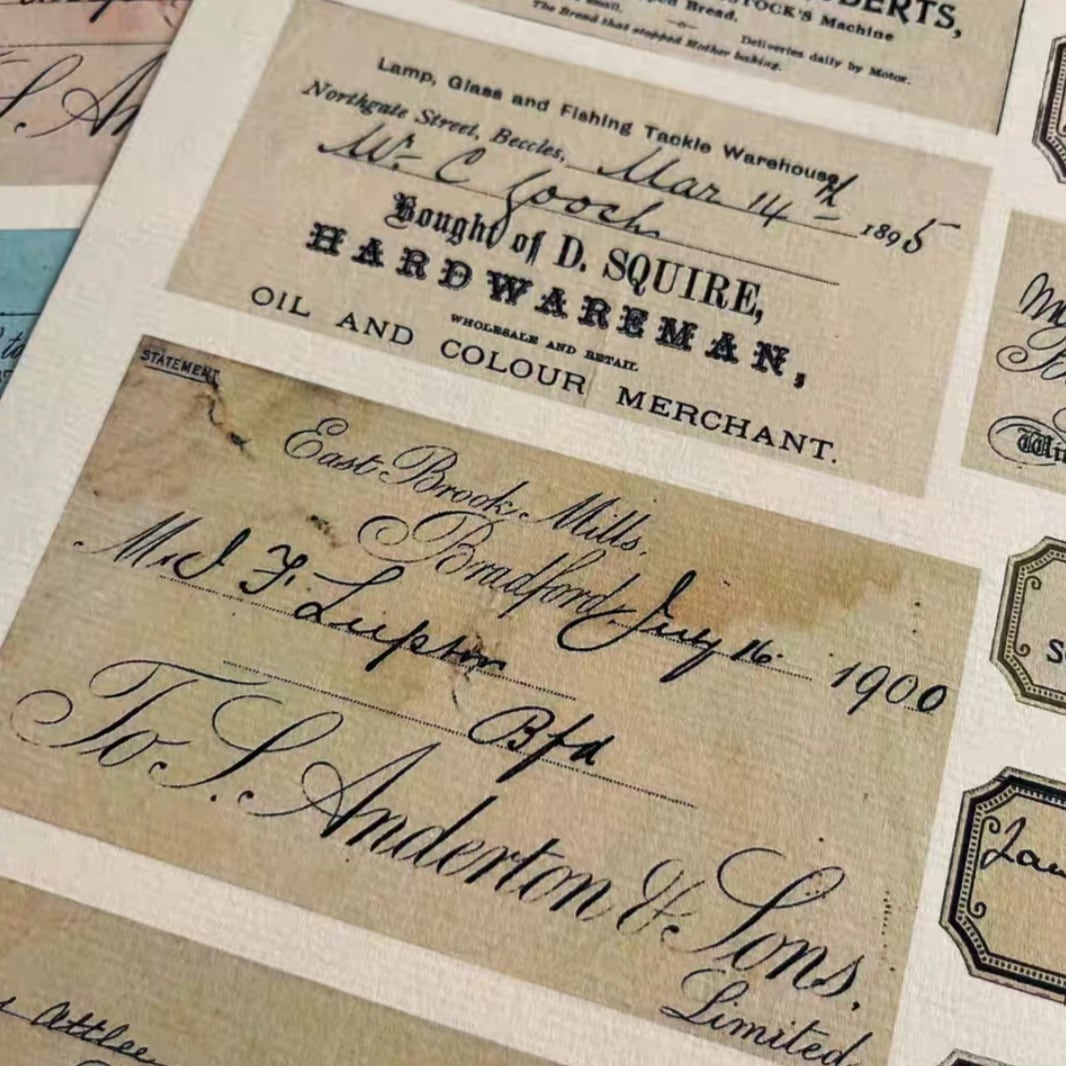 OBERTS,
STOCK'S Machine
Bread.
The Bread that stopped Mother baking.
Deliveries daily by Motor.
Lamp, Glass and Fishing Tackle Warehouse,
Northgate Street, Beccles, Mar 14th 1895
Mr C Gooch
Bought of D. SQUIRE,
HARDWAREMAN,
WHOLESALE AND RETAIL
OIL AND COLOUR MERCHANT.
STATEMENT
East Brook Mills.
Bradford, July 16. 1900
M. J. F. Lupton
Bfd
To S. Anderton & Sons.
Limited
Attlee